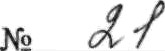 № 21